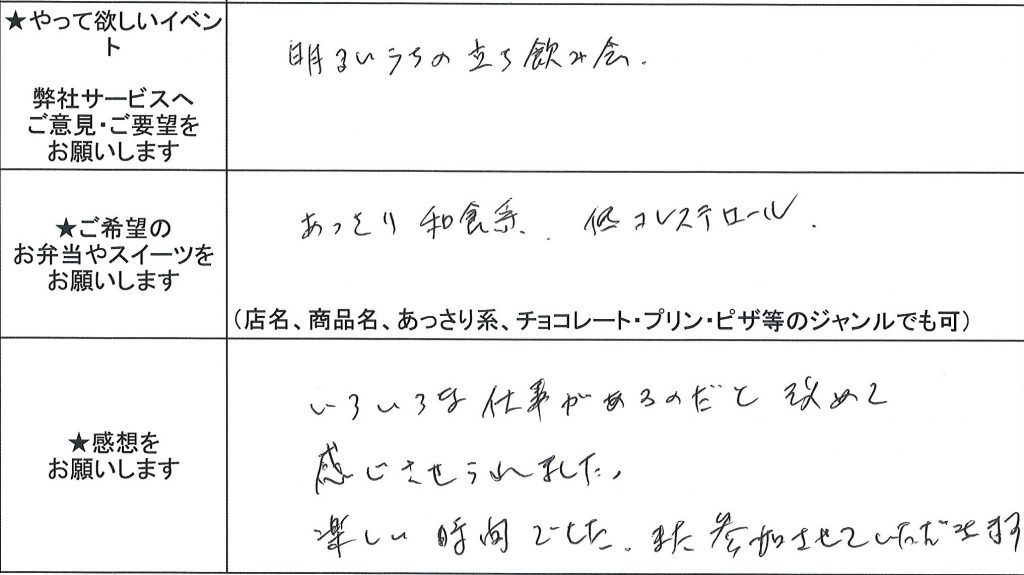 ★やって欲しいイベン
ト
弊社サービスへ
ご意見・ご要望を
お願いします
明るいうちの立ち飲み会.
★ご希望の
お弁当やスイーツを
お願いします
あっさり 和食系、. 低コレステロール.
(店名、商品名、あっさり系、チョコレート・プリン・ピザ等のジャンルでも可)
★感想を
お願いします
いろいろな仕事があるのだと改めて
感じさせられました。
楽しい時間でした. また参加させていただきます